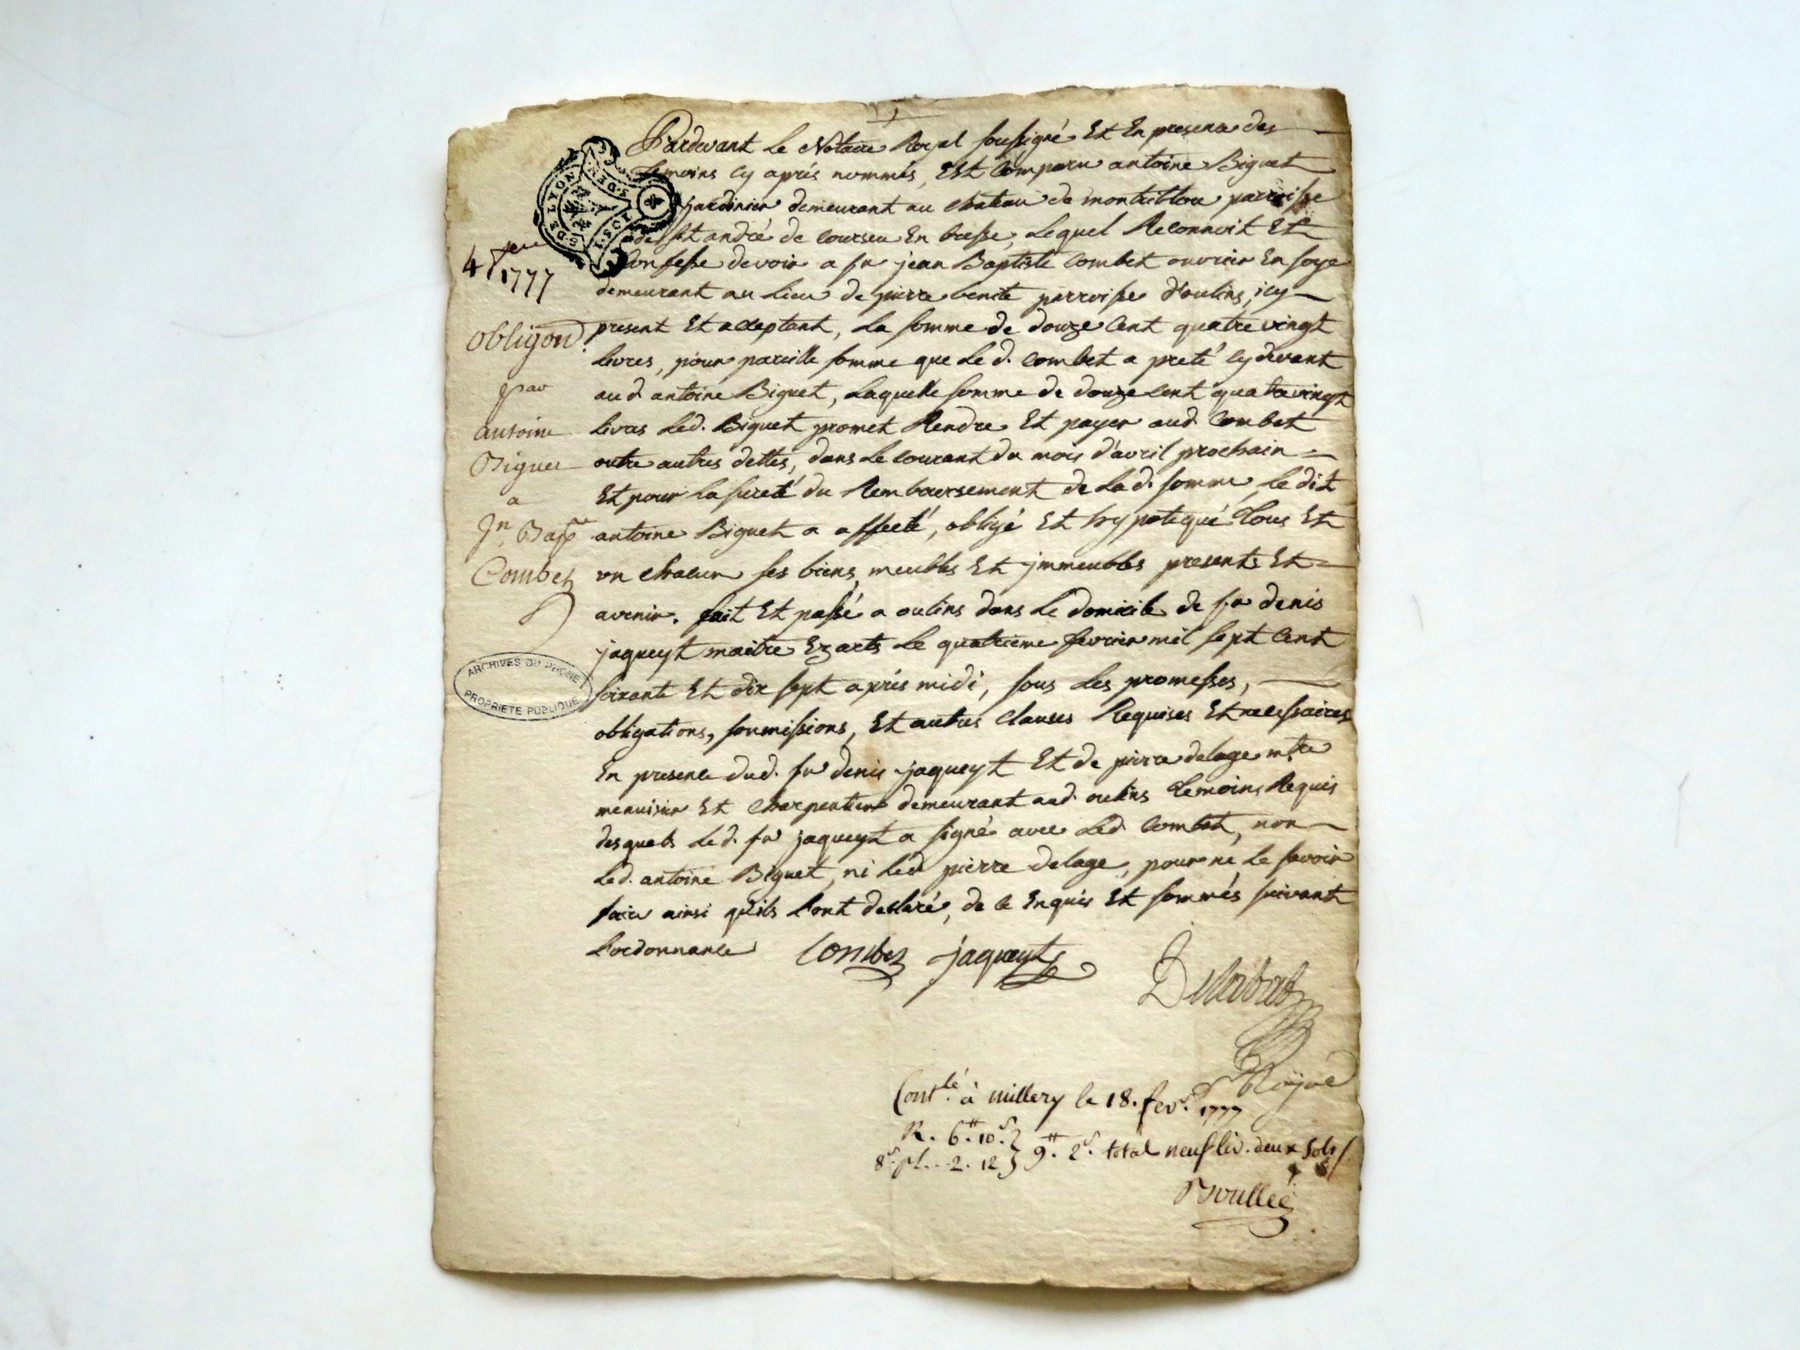 Pardevant Le Notaire Royal soussigné Et En presence des
temoins cy aprés nommés, Est Comparu antoine Biguet
jardinier demeurant au chateau de montribloux parroisse
de st andré de courseu En bresse, Lequel Reconnoit Et
Confesse devoir a sr jean Baptiste Combet ouvrier En soye
demeurant au Lieu de pierre benite parroisse d'oulins, icy
present Et acceptant, La somme de douze Cent quatre vingt
Livres, pour pareille somme que Led. Combet a preté cy devant
aud. antoine Biguet, Laquelle somme de douze cent quatre vingt
Livres Led. Biguet promet Rendre Et payer aud. Combet
outre autres dettes, dans Le courant du mois d'avril prochain
Et pour La sureté du Remboursement de Lad. somme, Le dit
antoine Biguet a affecté, obligé Et hypotequé Tous Et
un chacun ses biens, meubles Et jmmeubles presents Et
avenir. fait Et passé a oulins dans Le domicile de sr denis
jaqueyt maitre Ez arts Le quatrieme fevrier mil sept Cent
soixante Et dix sept aprés midi, sous Les promesses,
obligations, soumissions, Et autres Clauses Requises Et necessaires
En presence dud. sr denis jaqueyt Et de pierre delage mtre
menuisier Et Charpentier demeurant aud. oulins temoins Requis
desquels Led. sr jaqueyt a signé avec Led. Combet, non
Led. antoine Biguet, ni Led. pierre delage, pour ne Le savoir
faire ainsi qu'ils L'ont declaré, de ce Enquis Et sommés suivant
L'ordonnance
Combez jaqueyt
Delabat
Nre Royal
Contlé à millery le 18. fevr. 1777
R. 6tt. 10s.
8s. pl. 2. 12
9tt. 2s. total neuf liv. deux sols
Boullée
G. DE LYON
4 fevr
1777
obligaon
par
antoine
Biguet
a
Jn. Bapte
Combez
ARCHIVES DU RHONE
PROPRIETE PUBLIQUE